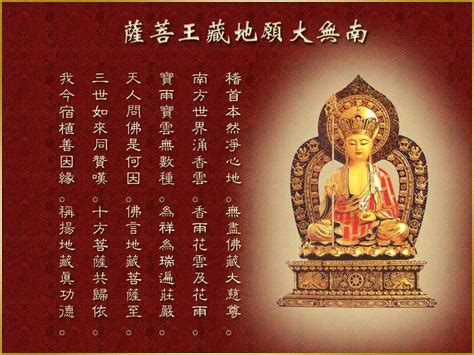 南無大願地藏王菩薩
稽首本然淨心地。無盡佛藏大慈尊。
南方世界涌香雲。香雨花雲及花雨。
寶雨寶雲無數種。為祥為瑞遍莊嚴。
天人問佛是何因。佛言地藏菩薩至。
三世如來同讚嘆。十方菩薩共歸依。
我今宿植善因緣。稱揚地藏眞功德。